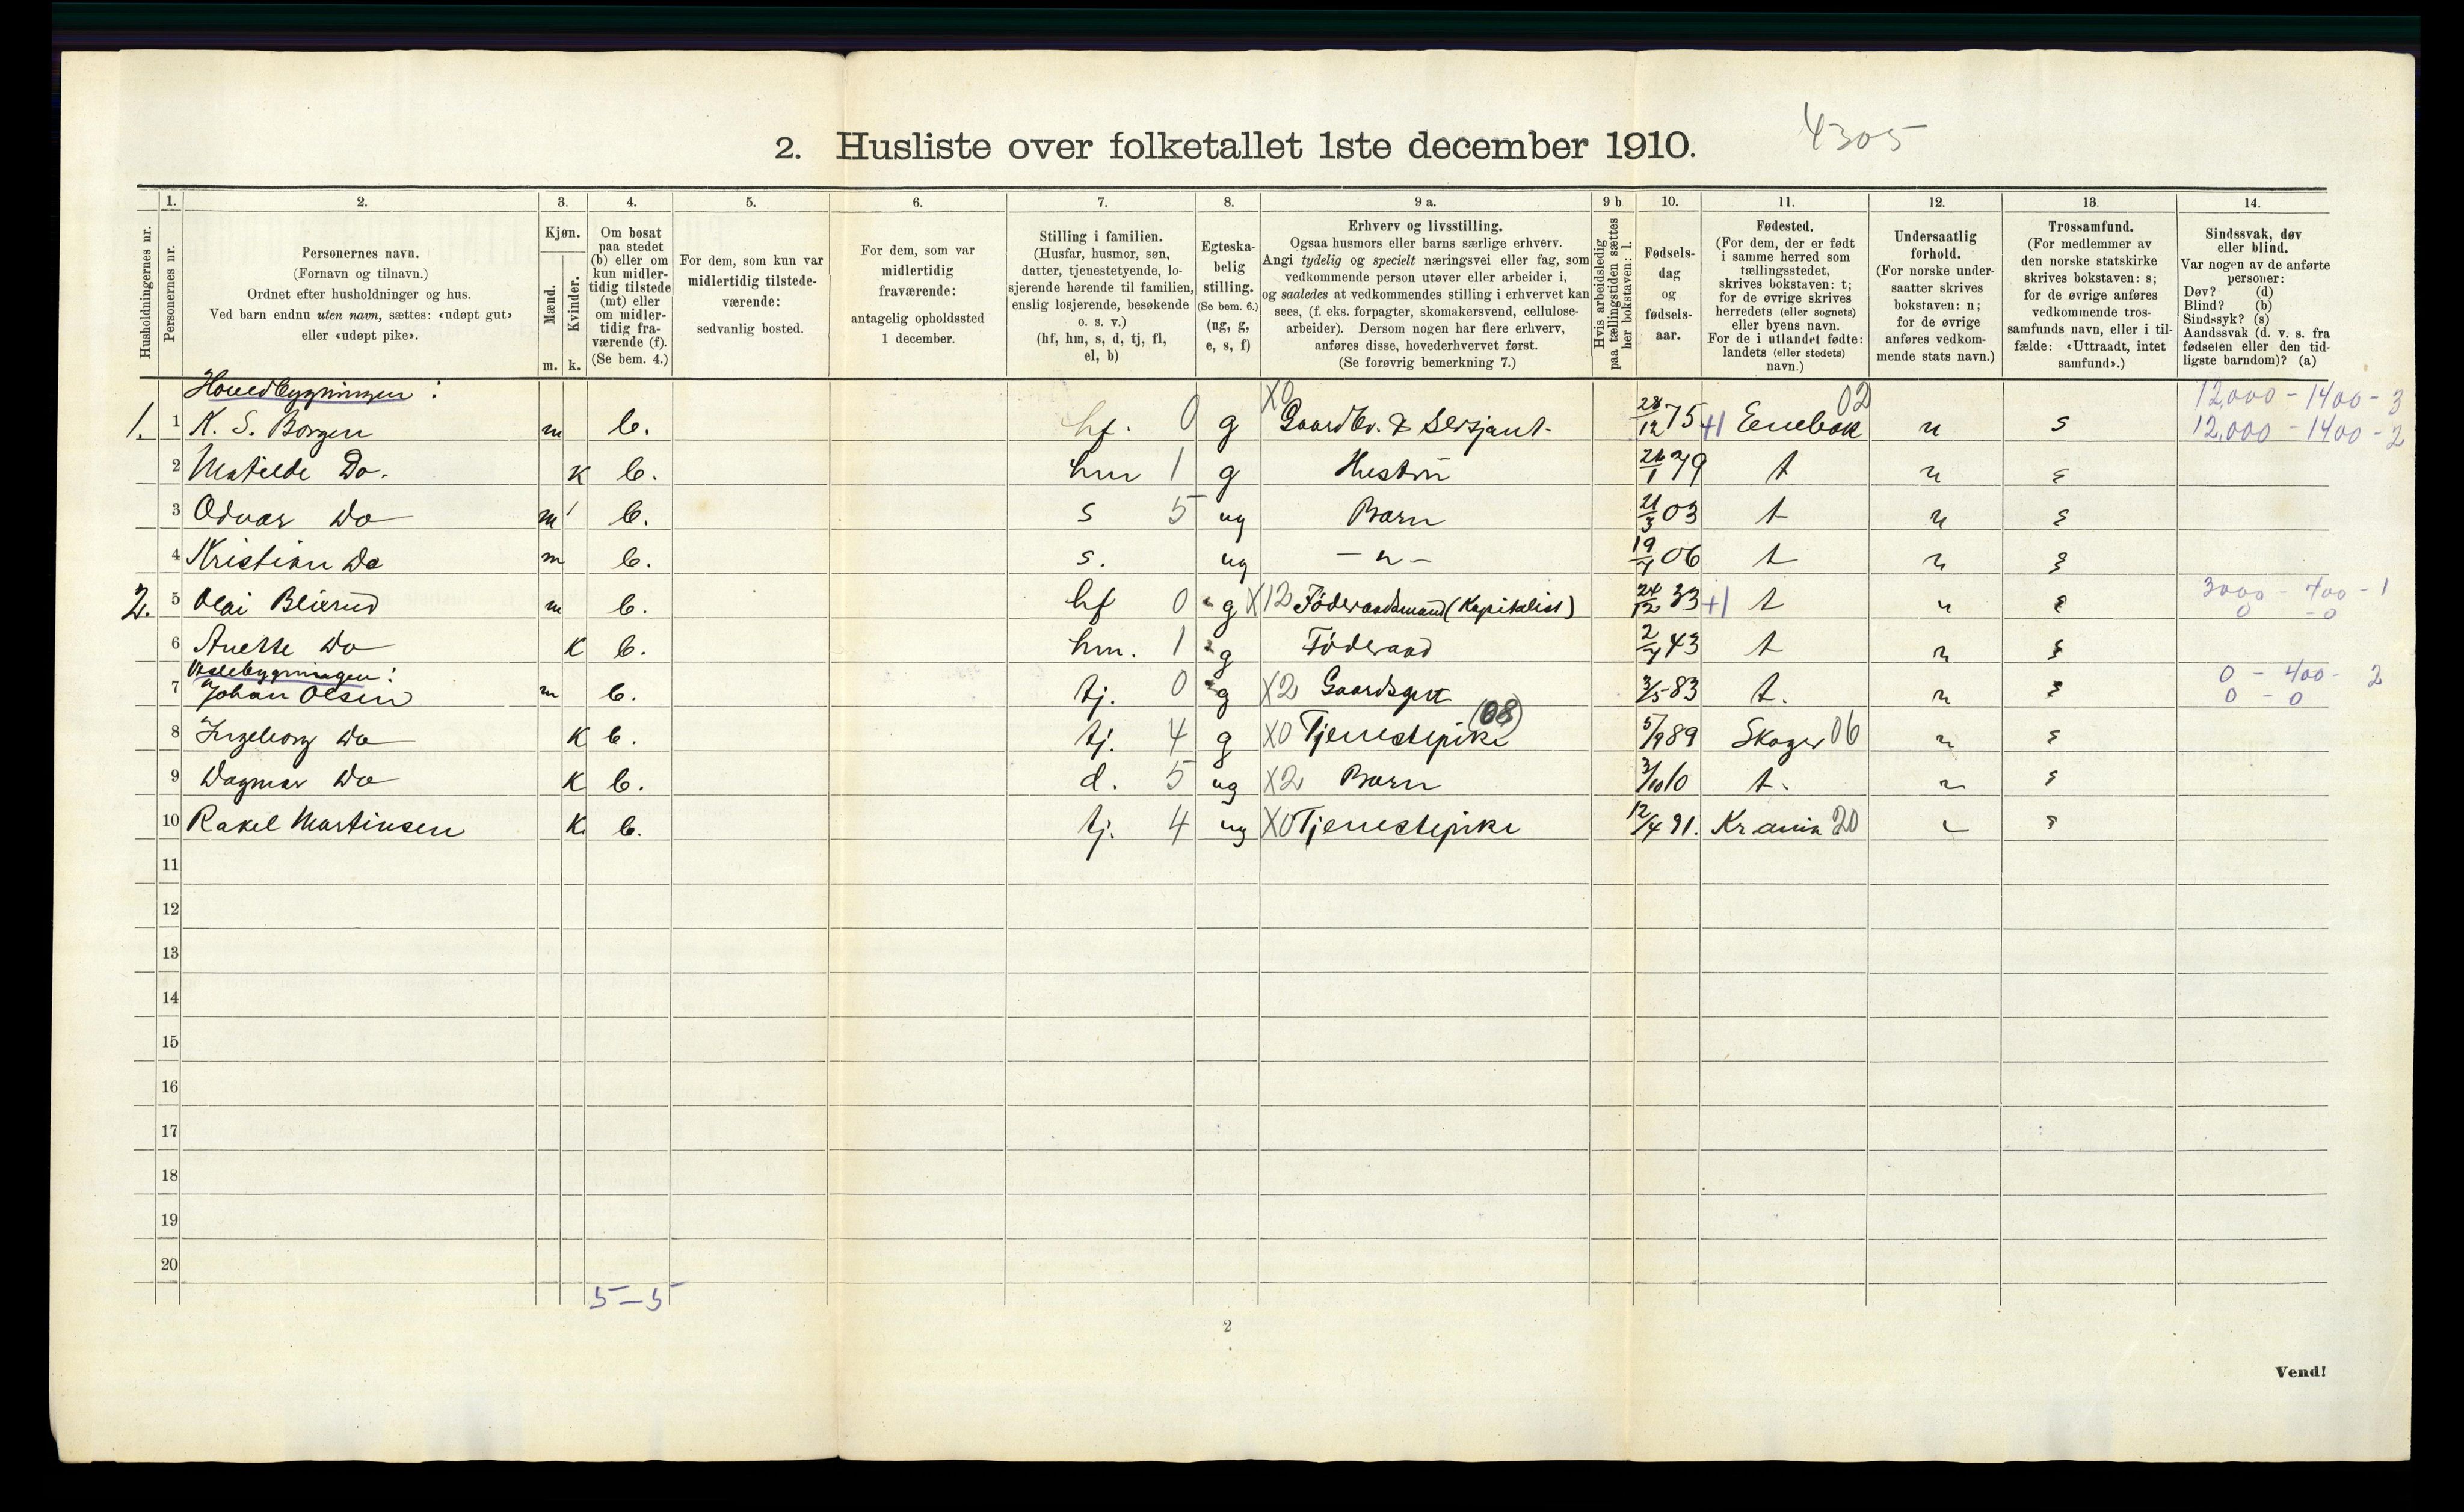 2. Husliste over folketallet 1ste december 1910.
4305
Husholdningernes nr.
1.
Personernes nr.
2.
Personernes navn.
(Fornavn og tilnavn.)
Ordnet efter husholdninger og hus.
Ved barn endnu uten navn, sættes: «udøpt gut»
eller «udøpt pike».
3.
Kjøn.
Mænd.
Kvinder.
m. k.
4.
Om bosat
paa stedet
(b) eller om
kun midler-
tidig tilstede
(mt) eller
om midler-
tidig fra-
værende (f).
(Se bem. 4.)
5.
For dem, som kun var
midlertidig tilstede-
værende:
sedvanlig bosted.
6.
For dem, som var
midlertidig
fraværende:
antagelig opholdssted
1 december.
7.
Stilling i familien.
(Husfar, husmor, søn,
datter, tjenestetyende, lo-
sjerende hørende til familien,
enslig losjerende, besøkende
o. s. v.)
(hf, hm, s, d, tj, fl,
el, b)
8.
Egteska-
belig
stilling.
(Se bem. 6.)
(ug, g,
e, s, f)
9 a.
Erhverv og livsstilling.
Ogsaa husmors eller barns særlige erhverv.
Angi tydelig og specielt næringsvei eller fag, som
vedkommende person utøver eller arbeider i,
og saaledes at vedkommendes stilling i erhvervet kan
sees, (f. eks. forpagter, skomakersvend, cellulose-
arbeider). Dersom nogen har flere erhverv,
anføres disse, hovederhvervet først.
(Se forøvrig bemerkning 7.)
9 b
Hvis arbeidsledig
paa tællingstiden sættes
her bokstaven: l.
10.
Fødsels-
dag
og
fødsels-
aar.
11.
Fødested.
(For dem, der er født
i samme herred som
tællingsstedet,
skrives bokstaven: t;
for de øvrige skrives
herredets (eller sognets)
eller byens navn.
For de i utlandet fødte:
landets (eller stedets)
navn.)
12.
Undersaatlig
forhold.
(For norske under-
saatter skrives
bokstaven: n;
for de øvrige
anføres vedkom-
mende stats navn.)
13.
Trossamfund.
(For medlemmer av
den norske statskirke
skrives bokstaven: s;
for de øvrige anføres
vedkommende tros-
samfunds navn, eller i til-
fælde: «Uttraadt, intet
samfund».)
14.
Sindssvak, døv
eller blind.
Var nogen av de anførte
personer:
Døv? (d)
Blind? (b)
Sindssyk? (s)
Aandssvak (d. v. s. fra
fødselen eller den tid-
ligste barndom)? (a)
Hovedbygningen: X0 02 12,000 - 1400 - 3
1. 1 K. S. Borgen m b. hf. 0 g Gaardbr. & Sersjant. 28/12 75 +1 Enebak n s 12,000 - 1400 - 2
2 Matilde Do. k b. hm 1 g Hustru 26/1 79 t n s
3 Odvar Do m b. s 5 ug Barn 21/3 03 t n s
4 Kristian Do m b. s. ug - " - 19/7 06 t n s
2. 5 Olai Blixrud m b. hf 0 g X12 Føderaadsmand (Kapitalist) 24/12 33 +1 t n s 3000 - 700 - 1
0 - 0
6 Anette Do k b. hm. 1 g Føderaad 2/7 43 t n s
Veslebygningen:
7 Johan Olsen m b. tj. 0 g X2 Gaardsgut 3/5 83 t. n s 0 - 400 - 2
0 - 0
8 Ingeborg Do k b. tj. 4 g X0 Tjenestepike (08) 5/9 89 Skoger 06 n s
9 Dagmar Do k b. d. 5 ug X2 Barn 3/10 10 t. n s
10 Rakel Martinsen k b. tj. 4 ug X0 Tjenestepike 12/4 91. Kr.ania 20 n s
11
12
13
14
15
16
17
18
19
20
5-5
2
Vend!